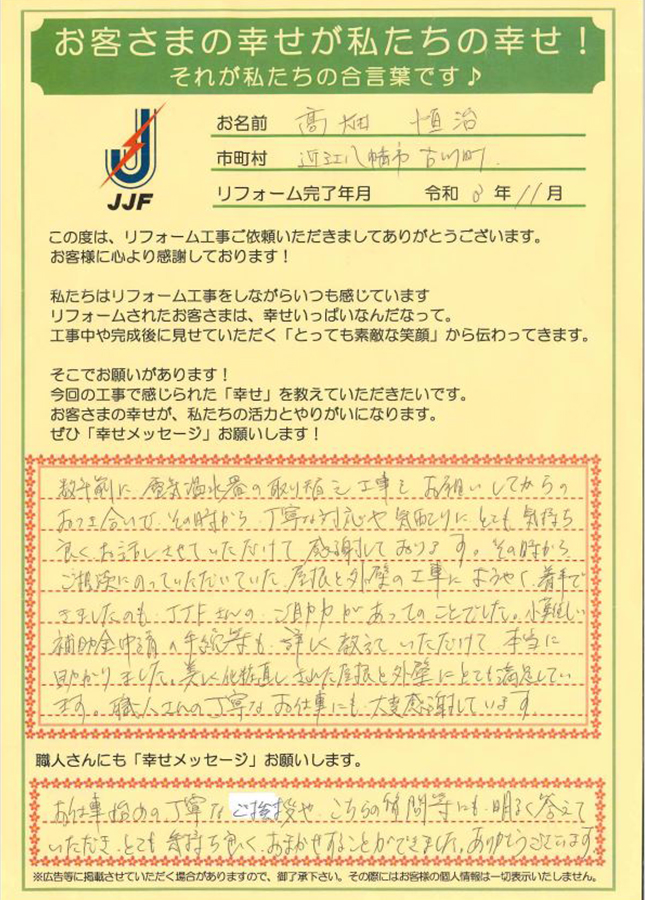 お客さまの幸せが私たちの幸せ！
それが私たちの合言葉です♪
JJF
お名前 高畑 恒治
市町村 近江八幡市 古川町.
リフォーム完了年月 令和 年 11月
この度は、リフォーム工事ご依頼いただきましてありがとうございます。
お客様に心より感謝しております！
私たちはリフォーム工事をしながらいつも感じています
リフォームされたお客さまは、幸せいっぱいなんだなって。
工事中や完成後に見せていただく「とっても素敵な笑顔」から伝わってきます。
そこでお願いがあります！
今回の工事で感じられた「幸せ」を教えていただきたいです。
お客さまの幸せが、私たちの活力とやりがいになります。
ぜひ「幸せメッセージ」お願いします！
数年前に電気温水器の取り替え工事をお願いしてからの
おつき合いで、その時から丁寧な対応や気配りにとても気持ち
良くお話しさせていただけて感謝しております。その時から
ご相談にのっていただいていた屋根と外壁の工事にようやく着手で
きましたのも、JJFさんのご助力があってのことでした。小難しい
補助金申請の手続等も、詳しく教えていただけて本当に
助かりました。美しく化粧直しされた屋根と外壁にとても満足してい
ます。職人さんの丁寧なお仕事にも大変感謝しています
職人さんにも「幸せメッセージ」お願いします。
お仕事始めの丁寧なご挨拶や、こちらの質問等にも明るく答えて
いただき、とても気持ち良くおまかせすることができました。ありがとうございます
※広告等に掲載させていただく場合がありますので、御了承下さい。その際にはお客様の個人情報は一切表示いたしません。